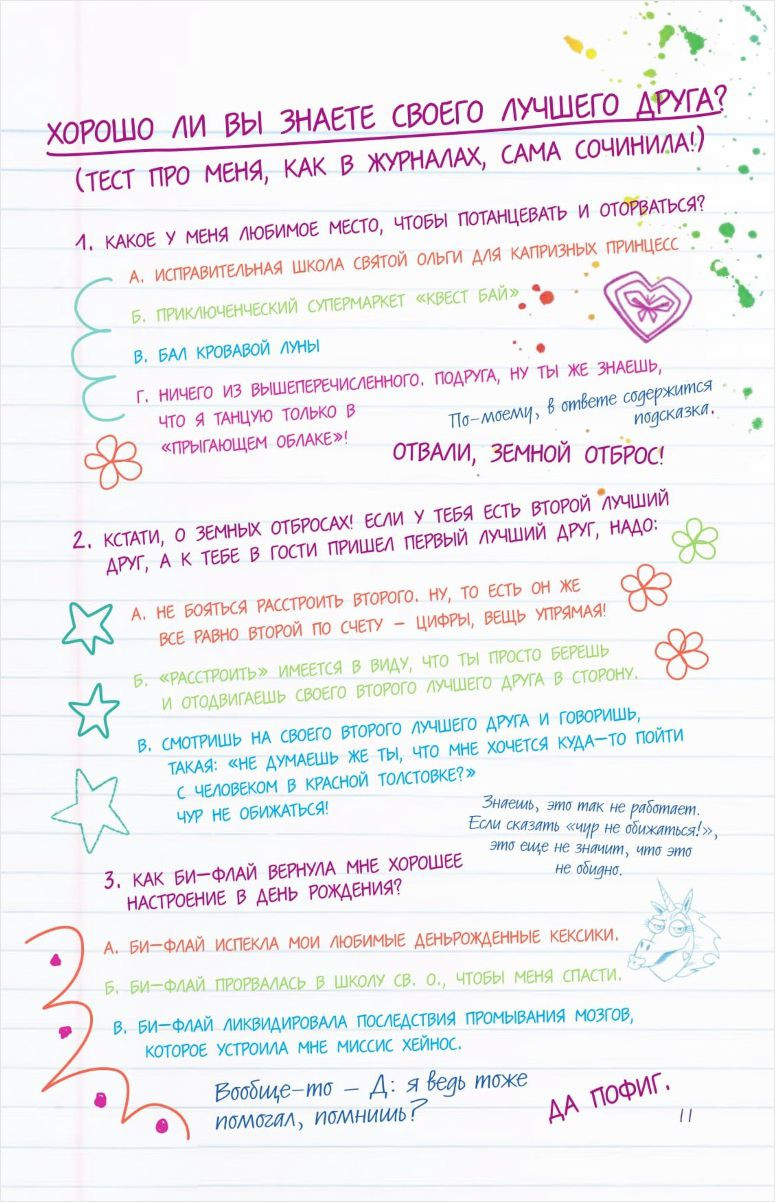 ХОРОШО ЛИ ВЫ ЗНАЕТЕ СВОЕГО ЛУЧШЕГО ДРУГА?
(ТЕСТ ПРО МЕНЯ, КАК В ЖУРНАЛАХ, САМА СОЧИНИЛА!)
1. КАКОЕ У МЕНЯ ЛЮБИМОЕ МЕСТО, ЧТОБЫ ПОТАНЦЕВАТЬ И ОТОРВАТЬСЯ?
А. ИСПРАВИТЕЛЬНАЯ ШКОЛА СВЯТОЙ ОЛЬГИ ДЛЯ КАПРИЗНЫХ ПРИНЦЕСС
Б. ПРИКЛЮЧЕНЧЕСКИЙ СУПЕРМАРКЕТ «КВЕСТ БАЙ»
В. БАЛ КРОВАВОЙ ЛУНЫ
Г. НИЧЕГО ИЗ ВЫШЕПЕРЕЧИСЛЕННОГО. ПОДРУГА, НУ ТЫ ЖЕ ЗНАЕШЬ,
ЧТО Я ТАНЦУЮ ТОЛЬКО В
«ПРЫГАЮЩЕМ ОБЛАКЕ»!
По-моему, в ответе содержится
подсказка.
ОТВАЛИ, ЗЕМНОЙ ОТБРОС!
2. КСТАТИ, О ЗЕМНЫХ ОТБРОСАХ! ЕСЛИ У ТЕБЯ ЕСТЬ ВТОРОЙ ЛУЧШИЙ
ДРУГ, А К ТЕБЕ В ГОСТИ ПРИШЕЛ ПЕРВЫЙ ЛУЧШИЙ ДРУГ, НАДО:
А. НЕ БОЯТЬСЯ РАССТРОИТЬ ВТОРОГО. НУ, ТО ЕСТЬ ОН ЖЕ
ВСЕ РАВНО ВТОРОЙ ПО СЧЕТУ – ЦИФРЫ, ВЕЩЬ УПРЯМАЯ!
Б. «РАССТРОИТЬ» ИМЕЕТСЯ В ВИДУ, ЧТО ТЫ ПРОСТО БЕРЕШЬ
И ОТОДВИГАЕШЬ СВОЕГО ВТОРОГО ЛУЧШЕГО ДРУГА В СТОРОНУ.
В. СМОТРИШЬ НА СВОЕГО ВТОРОГО ЛУЧШЕГО ДРУГА И ГОВОРИШЬ,
ТАКАЯ: «НЕ ДУМАЕШЬ ЖЕ ТЫ, ЧТО МНЕ ХОЧЕТСЯ КУДА–ТО ПОЙТИ
С ЧЕЛОВЕКОМ В КРАСНОЙ ТОЛСТОВКЕ?»
ЧУР НЕ ОБИЖАТЬСЯ!
Знаешь, это так не работает.
Если сказать «чур не обижаться!»,
это еще не значит, что это
не обидно.
3. КАК БИ–ФЛАЙ ВЕРНУЛА МНЕ ХОРОШЕЕ
НАСТРОЕНИЕ В ДЕНЬ РОЖДЕНИЯ?
А. БИ–ФЛАЙ ИСПЕКЛА МОИ ЛЮБИМЫЕ ДЕНЬРОЖДЕННЫЕ КЕКСИКИ.
Б. БИ–ФЛАЙ ПРОРВАЛАСЬ В ШКОЛУ СВ. О., ЧТОБЫ МЕНЯ СПАСТИ.
В. БИ–ФЛАЙ ЛИКВИДИРОВАЛА ПОСЛЕДСТВИЯ ПРОМЫВАНИЯ МОЗГОВ,
КОТОРОЕ УСТРОИЛА МНЕ МИССИС ХЕЙНОС.
Вообще-то – Д: я ведь тоже
помогал, помнишь?
ДА ПОФИГ.
11